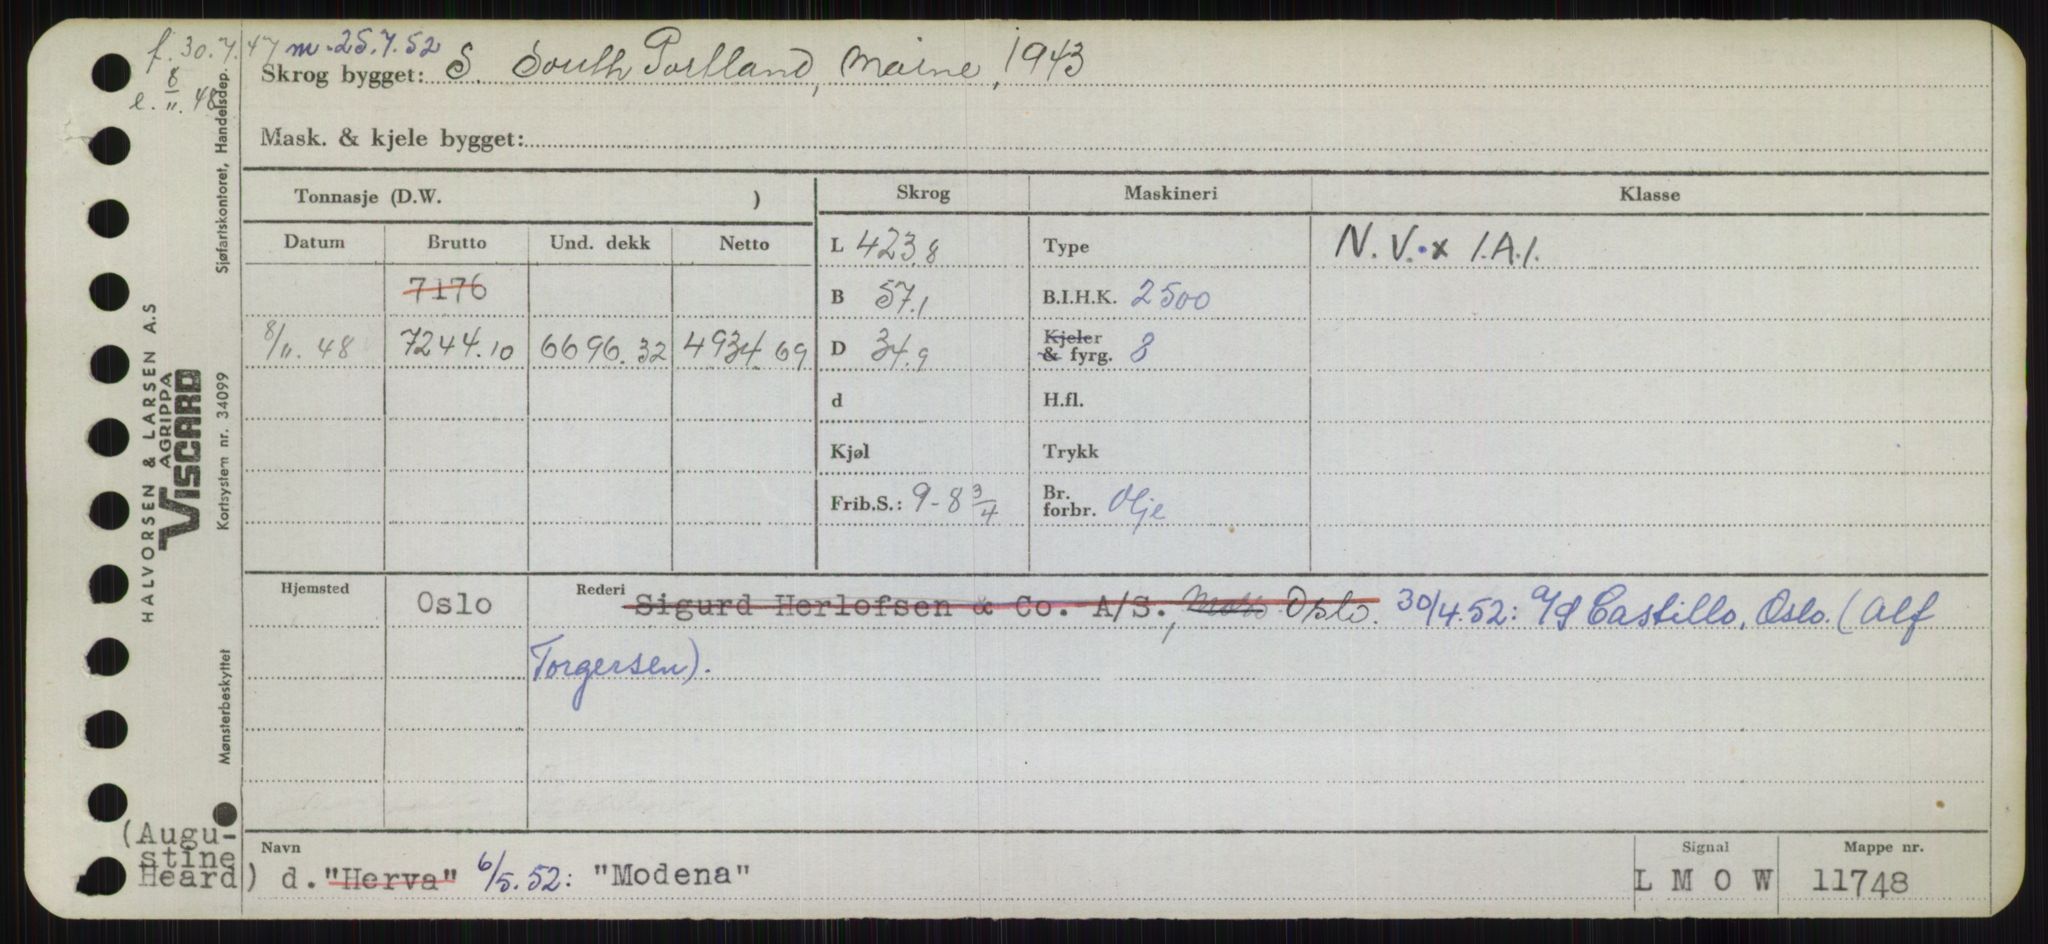 f. 30.7.47 m. 25.7.52
e. 8/11. 48
Skrog bygget: S. South Portland, Maine, 1943
Mask. & kjele bygget:
Tonnasje (D.W. )
Skrog
Maskineri
Klasse
Datum
Brutto
Und. dekk
Netto
L 423.8
Type
N. V. x 1.A.1.
7176
B 57.1
B.I.H.K. 2500
8/11. 48
7244.10
6696.32
4934.69
D 34.9
Kjeler
& fyrg. 8
d
H.fl.
Kjøl
Trykk
Frib.S.: 9-8 3/4
Br.
forbr. Olje
Hjemsted
Oslo
Rederi
Sigurd Herlofsen & Co. A/S., Oslo. 30/4.52: A/S Castillo, Oslo. (Alf
Torgersen).
(Augu-
stine
Heard)
Navn
d. "Herva" 6/5.52: "Modena"
Signal
L M O W
Mappe nr.
11748
Sjøfartskontoret, Handelsdep.
HALVORSEN & LARSEN A.S
AGRIPPA
VISCARD
Kortsystem nr. 34099
Mønsterbeskyttet